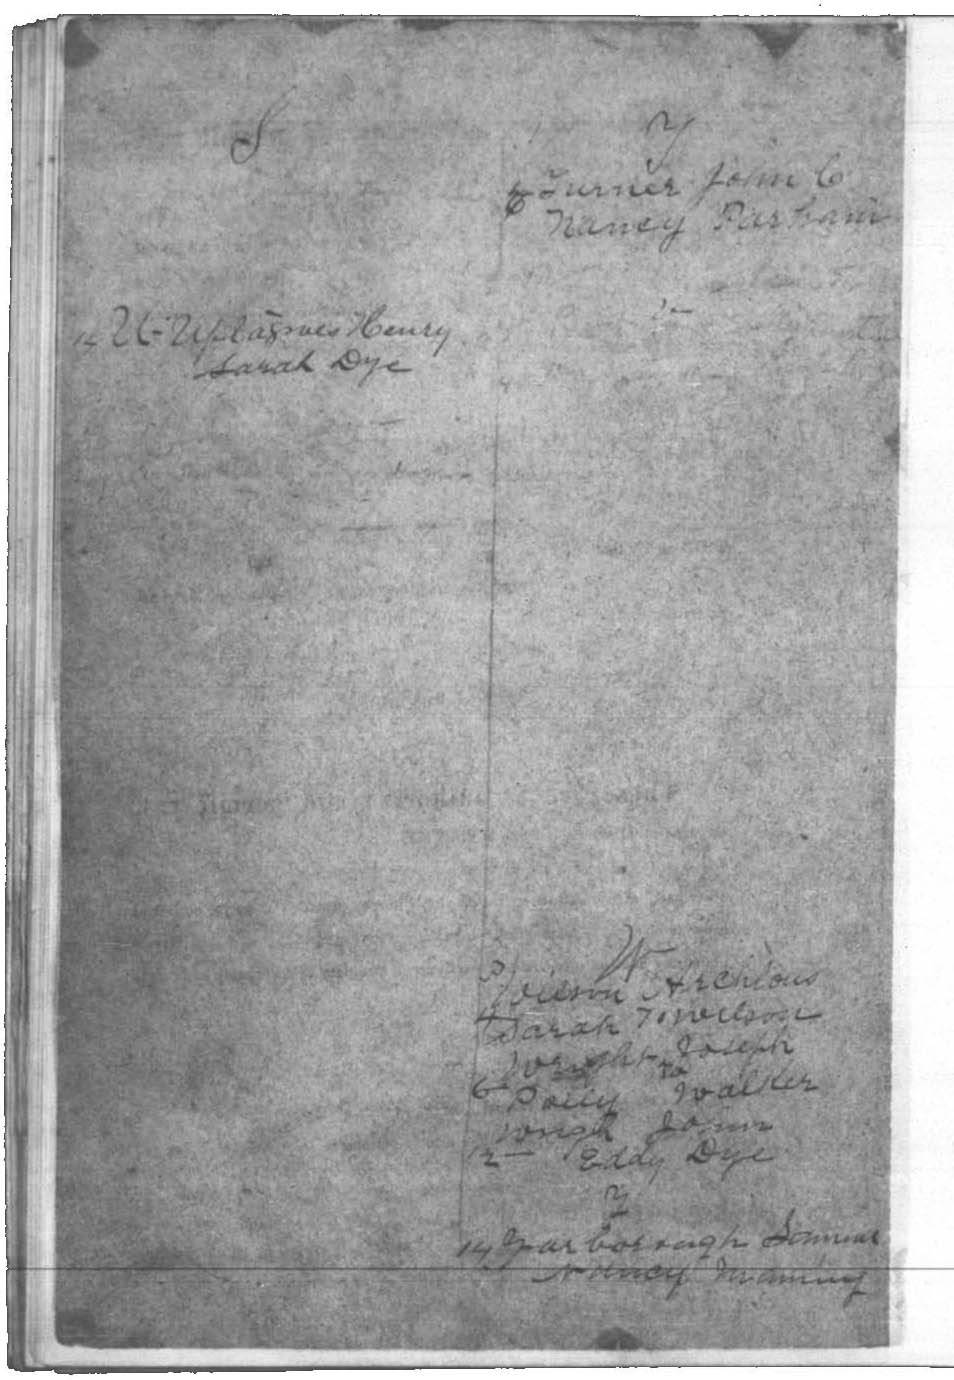 S
14 U- Henry
Sarah Dye
T
6 Turner John C
Nancy Parham
W
Wilson
Sarah T. Wilson
Wright Joseph
to
6 Polly Walker
Wright John
12 Eddy Dye
Y
14 Yarborough Samuel
Nancy Maning